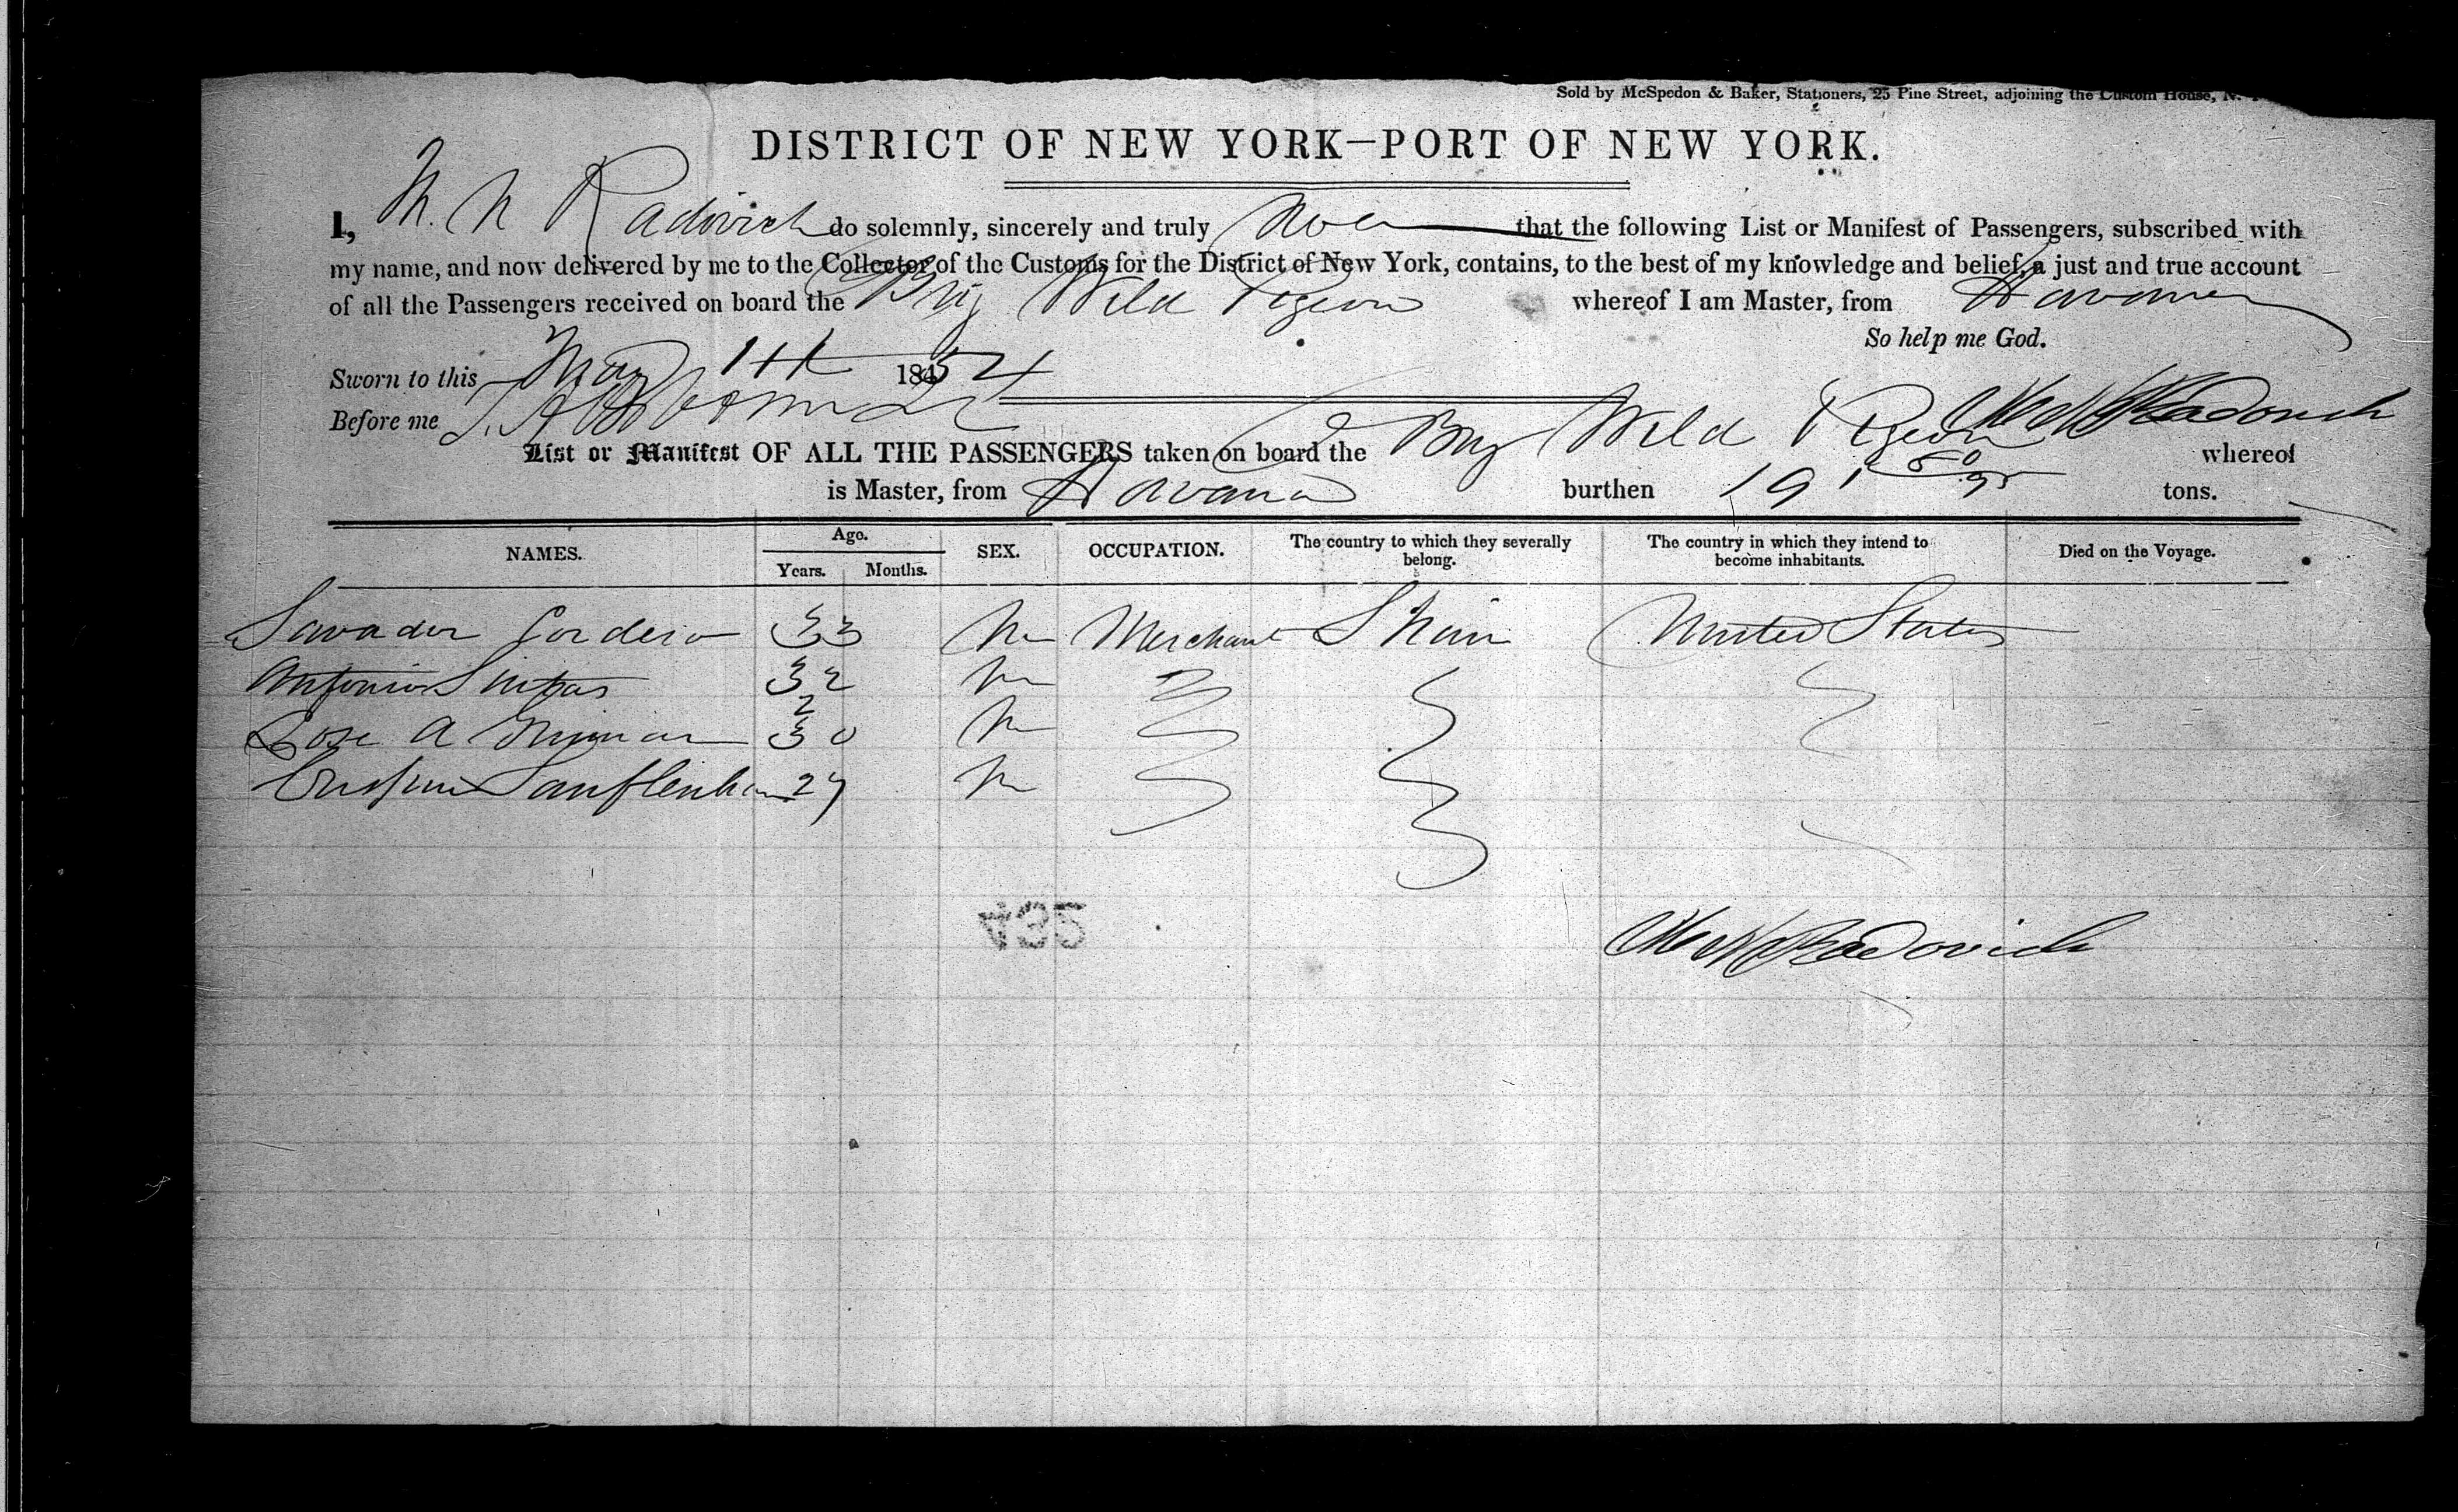 Sold by McSpedon & Baker, Stationers, 25 Pine Street, adjoining the Custom House, N.
DISTRICT OF NEW YORK—PORT OF NEW YORK.
I, M. N Radovich do solemnly, sincerely and truly that the following List or Manifest of Passengers, subscribed with
my name, and now delivered by me to the Collector of the Customs for the District of New York, contains, to the best of my knowledge and belief, a just and true account
of all the Passengers received on board the Brig Wild Pigeon whereof I am Master, from Havana
So help me God.
Sworn to this May 1854
Before me
Radovich
List or Manifest OF ALL THE PASSENGERS taken on board the Brig Wild Pigeon whereof
is Master, from Havana burthen 191 50/95 tons.
NAMES. Age. SEX. OCCUPATION. The country to which they severally belong. The country in which they intend to become inhabitants. Died on the Voyage.
Years. Months.
Savador Cordero 33 M Merchant Spain United States
Antonio 32 M
2
Jose A 30 M
27 M
432
Radovich